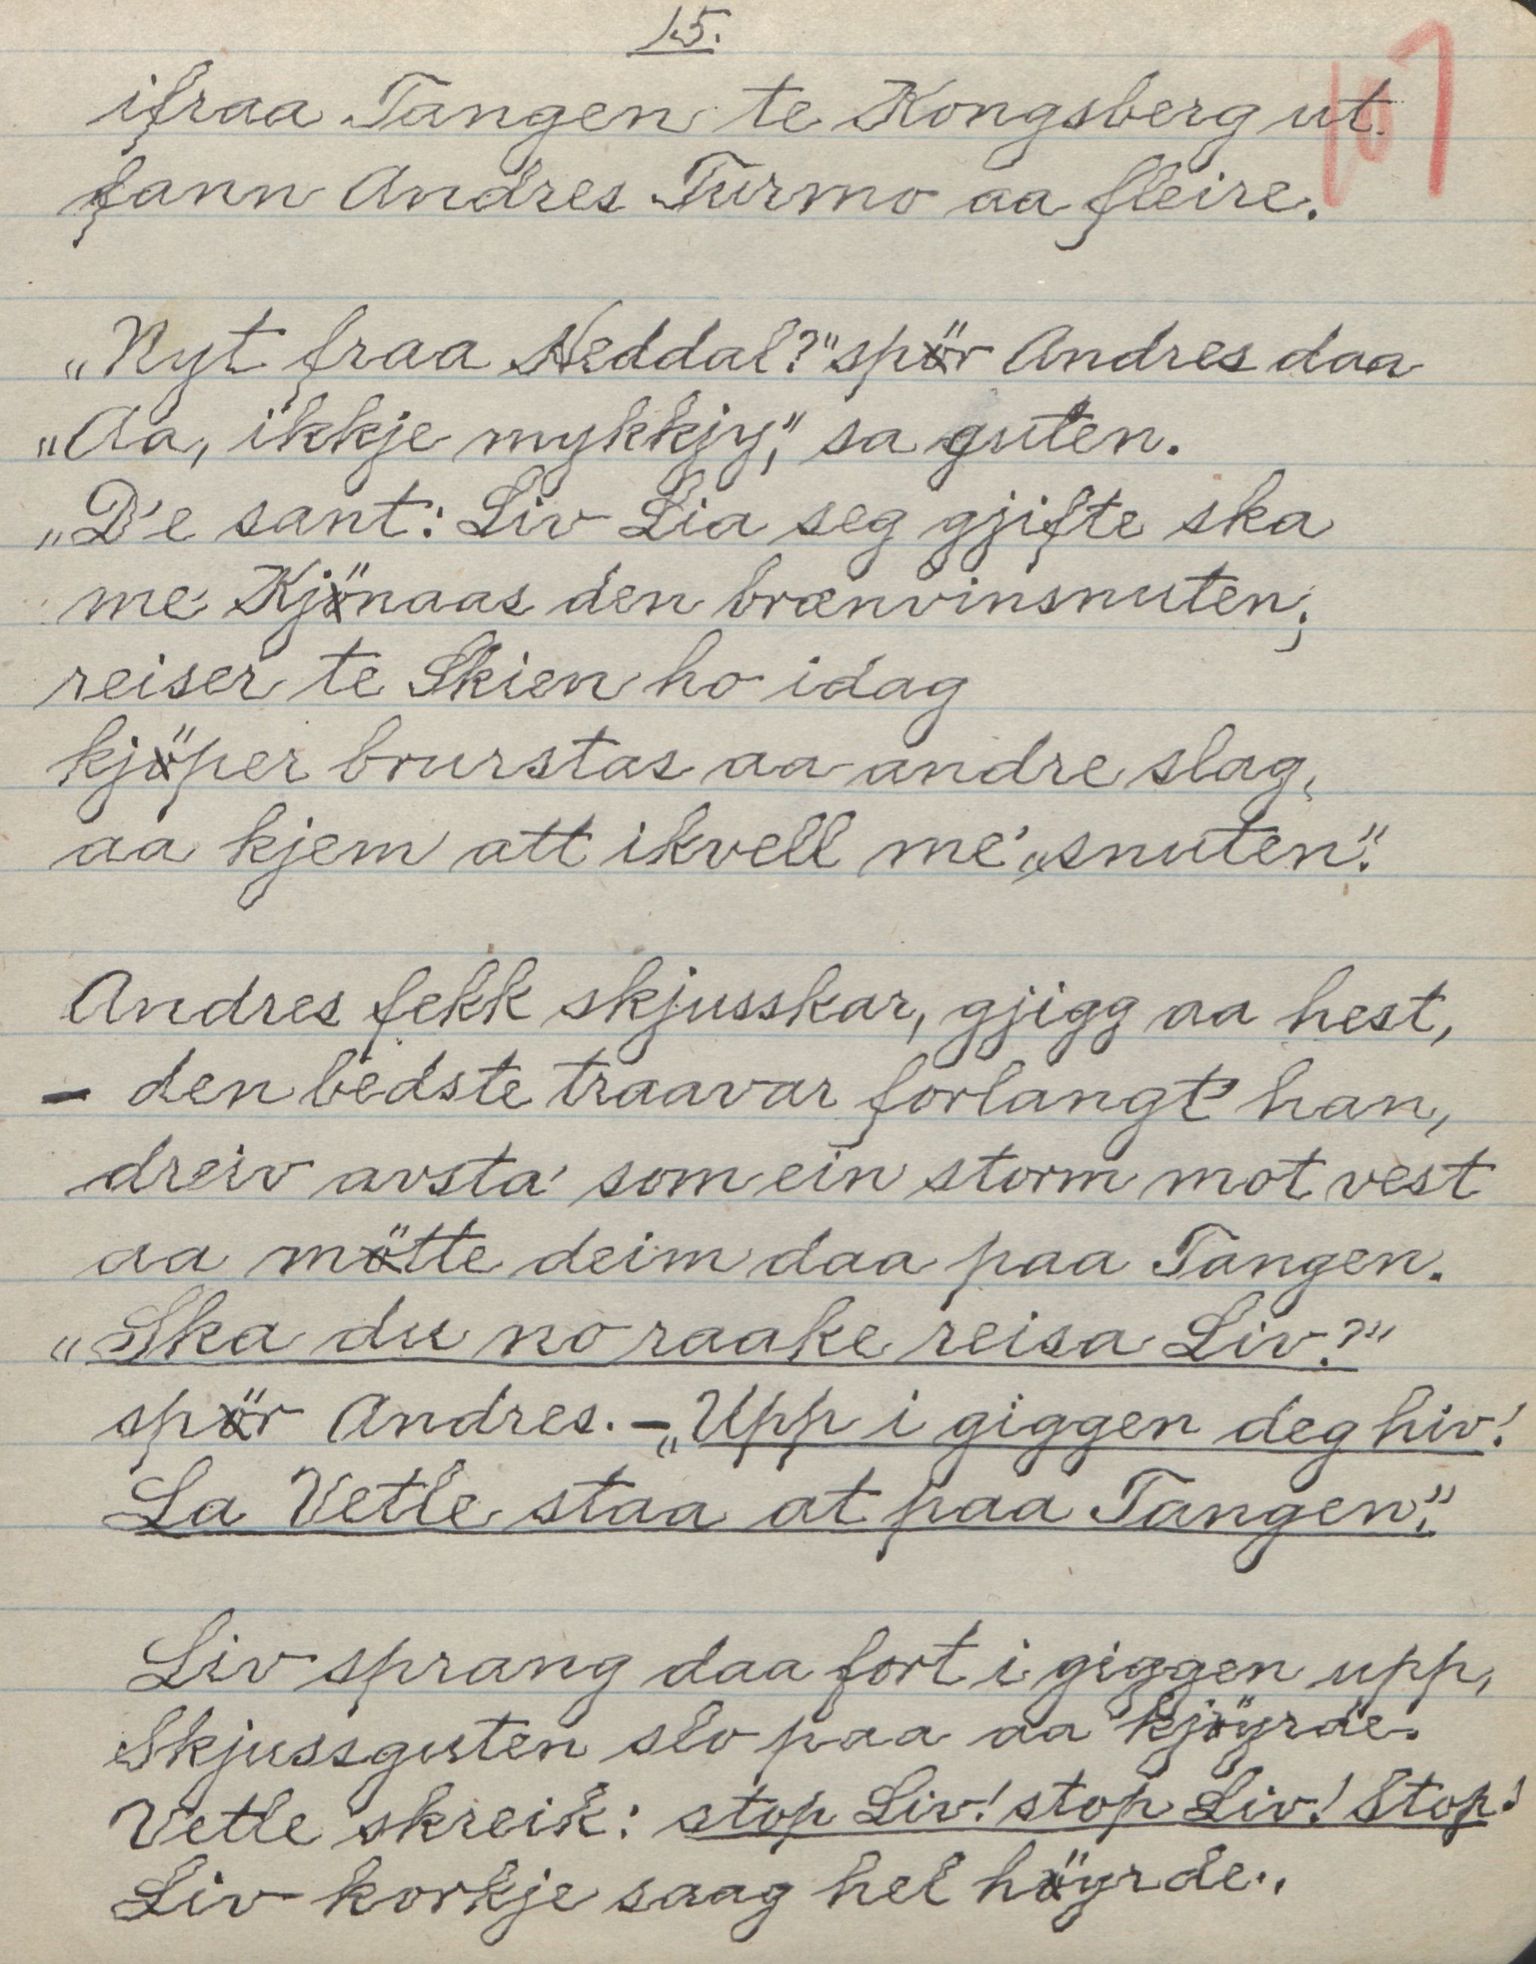 15.
107
ifraa Tangen te Kongsberg ut.
fann Andres Turmo aa fleire.
„Nyt fraa Heddal?" spör Andres daa
„Aa, ikkje mykkjy," sa guten.
„D'e sant: Liv Lia seg gjifte ska
me' Kjönaas den brænvinsnuten;
reiser te Skien ho idag
kjöper brurstas aa andre slag,
aa kjem att ikvell me' „snuten".
Andres fekk skjusskar, gjigg aa hest,
– den bedste traavar forlangt' han,
dreiv avsta' som ein storm mot vest
aa mötte deim daa paa Tangen.
„Ska du no raake reisa Liv?"
spör Andres. – „Upp i giggen deg hiv!
La Vetle staa at paa Tangen".
Liv sprang daa fort i giggen upp,
Skjussguten slo paa aa kjöyrde.
Vetle skreik: stop Liv! stop Liv! Stop!
Liv korkje saag hel höyrde.